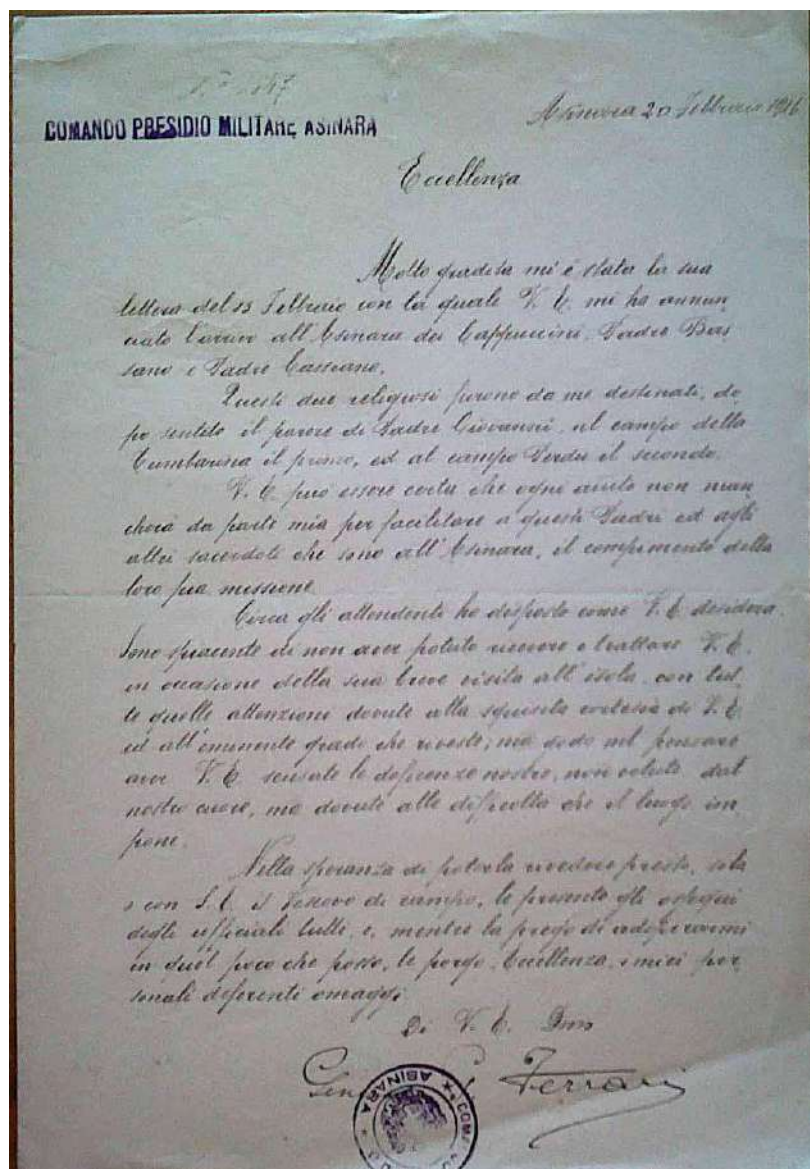 COMANDO PRESIDIO MILITARE ASINARA
Asinara 20 Febbraio 1916
Eccellenza
Molto gradita mi è stata la sua
lettera del 13 Febbraio con la quale V. E. mi ha annun
ciato l'arrivo all'Asinara dei Cappuccini, Padre Bas
sano e Padre Cassiano.
Questi due religiosi furono da me destinati, do
po sentito il parere di Padre Giovanni, al campo della
Tumbarina il primo, ed al campo Perdu il secondo.
V. E. può essere certa che ogni aiuto non man
cherà da parte mia per facilitare a questi Padri ed agli
altri sacerdoti che sono all'Asinara, il compimento della
loro pia missione.
Circa gli attendenti ho disposto come V. E. desidera.
Sono spiacente di non aver potuto ricevere e trattare V. E.
in occasione della sua breve visita all'isola, con tut
te quelle attenzioni dovute alla squisita cortesia di V. E.
ed all'eminente grado che riveste; ma godo nel pensare
aver V. E. scusate le deficenze nostre, non volute dal
nostro cuore, ma dovute alle difficoltà che il luogo im
pone.
Nella speranza di poterla rivedere presto, sola
o con S. E. il Vescovo di campo, le presento gli ossequi
degli ufficiali tutti, e, mentre la prego di adoperarmi
in quel poco che posso, le porgo, Eccellenza, i miei per
sonali deferenti omaggi.
Di V. E. Dmo
Gen Ferrari
ASINARA